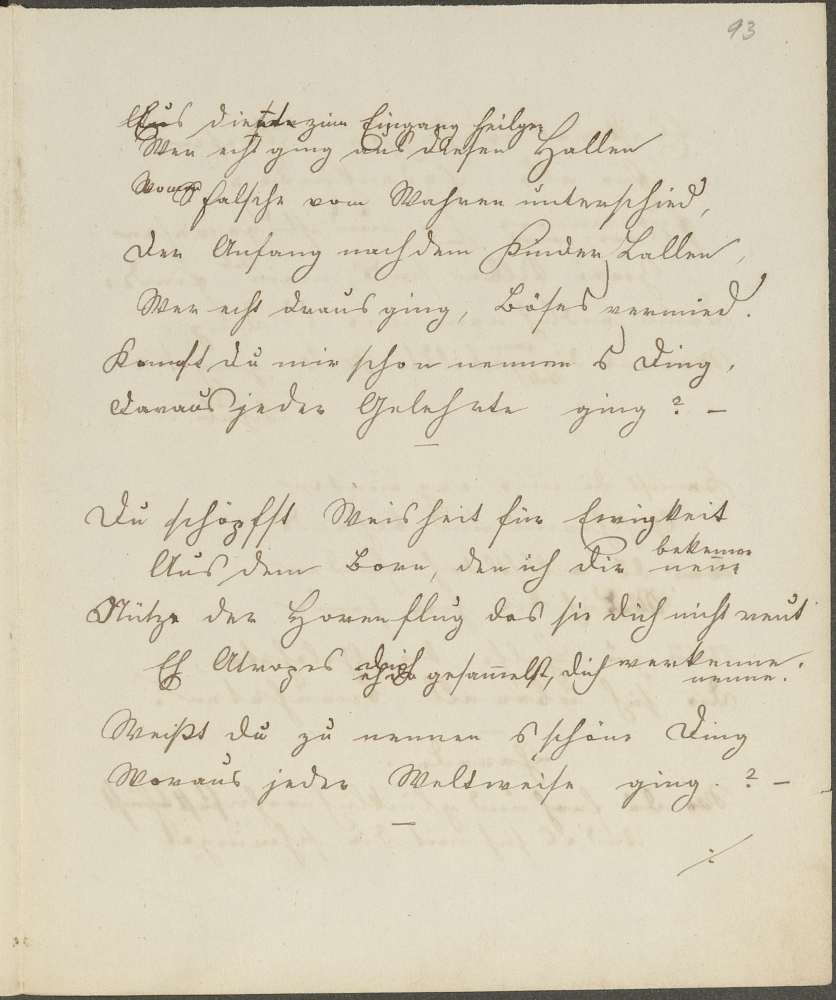 93
Aus die zum Eingang heilgen
Wer echt ging aus diesen Hallen
Wovon S falsche vom Wahren unterschied,
Der Anfang nach dem Kinder Lallen,
Wer echt draus ging, Böses vermied.
Kannst du mir schon nennen s Ding,
Daraus jeder Gelehrte ging? –
Du schöpfst Weisheit für Ewigkeit
Aus dem Born, den ich dir bekenne
nenne
Nütze der Horenflug das sie dich nicht reut
Eh Atropos dich gesammelst, dich verkenne.
nenne.
Weißt du zu nennen s schöne Ding
Woraus jeder Weltweise ging. ? –